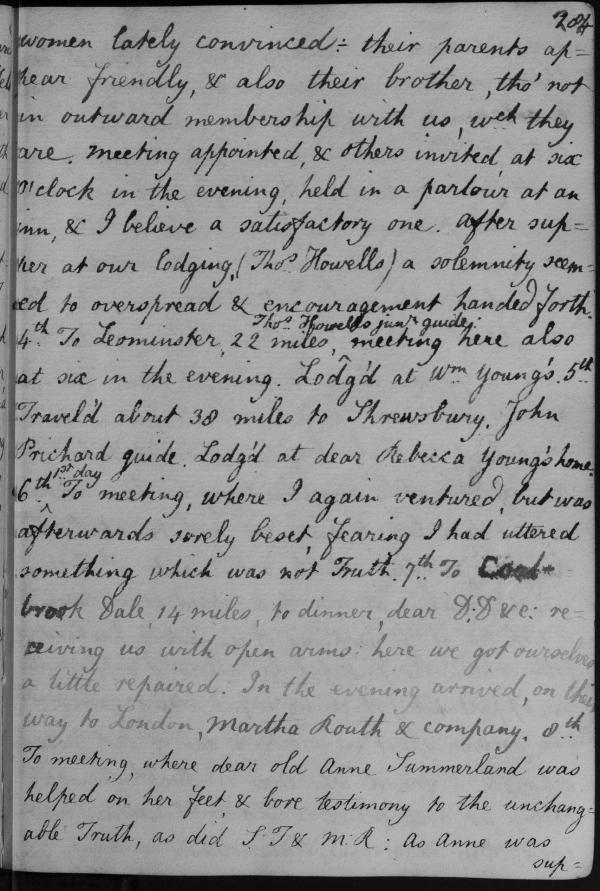 284
women lately convinced: their parents ap=
pear friendly, & also their brother, tho' not
in outward membership with us, wch they
are. Meeting appointed, & others invited, at six
o'clock in the evening, held in a parlour at an
inn, & I believe a satisfactory one. After sup=
per at our lodging, (Thos. Howells) a solemnity seem=
ed to overspread & encouragement handed forth.
Thos. Howells junr. guide.
4th. To Leominster, 22 miles, meeting here also
at six in the evening. Lodg'd at Wm Young's. 5th.
Travel'd about 38 miles to Shrewsbury. John
Prichard guide. Lodg'd at dear Rebecca Young's home.
1st day
6th. ^ To meeting, where I again ventured, but was
afterwards sorely beset, fearing I had uttered
something which was not Truth. 7th. To Coal=
brook Dale, 14 miles, to dinner, dear D:D &c: re=
ceiving us with open arms: here we got ourselves
a little repaired. In the evening arrived, on their
way to London, Martha Routh & company. 8th.
To meeting, where dear old Anne Summerland was
helped on her feet, & bore testimony to the unchang=
able Truth, as did S.T & M:R: As Anne was
sup=